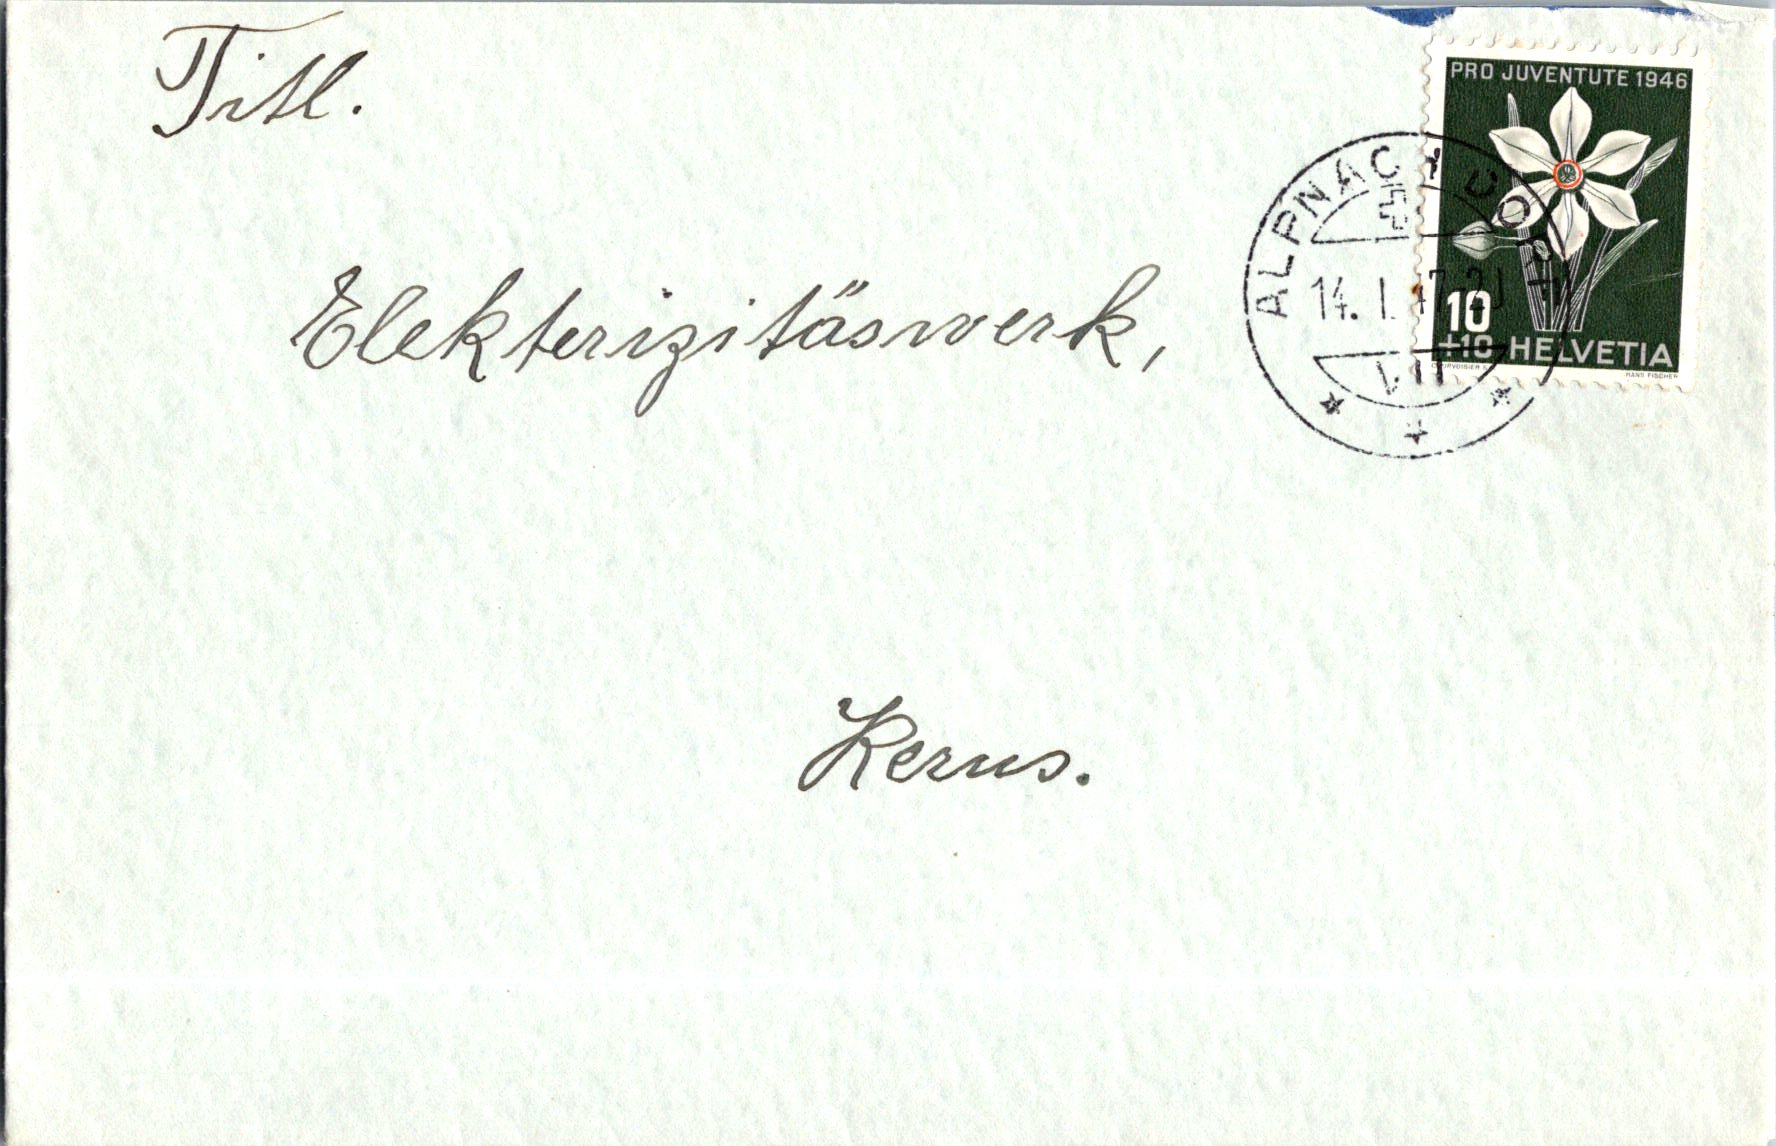 Titl.
PRO JUVENTUTE 1946
ALPNACH DORF
14. I. 47-20
VII
10
+10 HELVETIA
COURVOISIER S.A.
HANS FISCHER
Elekterizitäswerk,
Kerns.